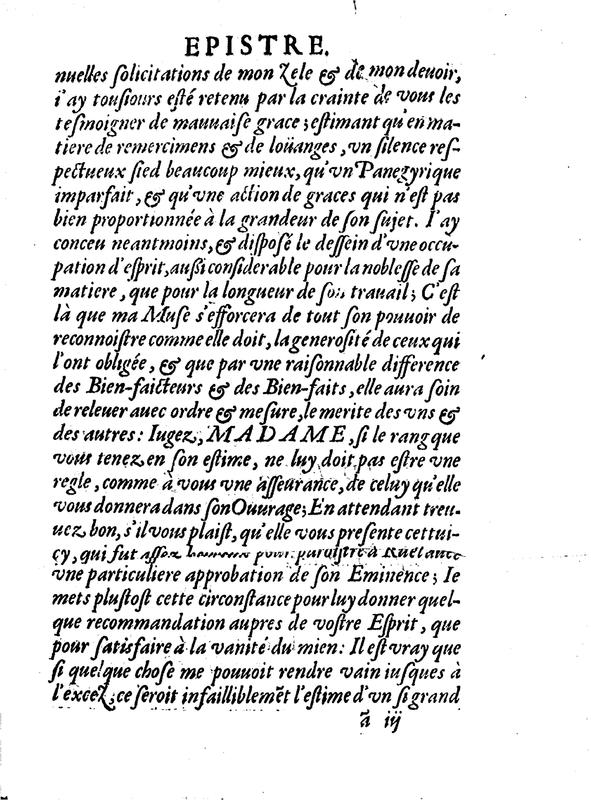 EPISTRE.
nuelles ſolicitations de mon Zele & de mon deuoir,
i'ay touſiours eſté retenu par la crainte de vous les
teſmoigner de mauuaiſe grace ; eſtimant qu'en ma-
tiere de remercimens & de loüanges, vn ſilence reſ-
pectueux ſied beaucoup mieux, qu'vn Panegyrique
imparfait, & qu'vne action de graces qui n'eſt pas
bien proportionnée à la grandeur de ſon ſujet. I'ay
conceu neantmoins, & diſpoſé le deſſein d'vne occu-
pation d'eſprit, auſsi conſiderable pour la nobleſſe de ſa
matiere, que pour la longueur de ſon trauail ; C'eſt
là que ma Muſe s'efforcera de tout ſon pouuoir de
reconnoiſtre comme elle doit, la generoſité de ceux qui
l'ont obligée, & que par vne raiſonnable difference
des Bien-faicteurs & des Bien-faits, elle aura ſoin
de releuer auec ordre & meſure, le merite des vns &
des autres : Iugez, MADAME, ſi le rang que
vous tenez en ſon eſtime, ne luy doit pas eſtre vne
regle, comme à vous vne aſſeurance, de celuy qu'elle
vous donnera dans ſon Ouurage ; En attendant treu-
uez bon, s'il vous plaiſt, qu'elle vous preſente cettui-
çy, qui fut aſſez pour paraiſtre à Ruel auec
vne particuliere approbation de ſon Eminence ; Ie
mets pluſtoſt cette circonſtance pour luy donner quel-
que recommandation aupres de voſtre Eſprit, que
pour ſatisfaire à la vanité du mien : Il eſt vray que
ſi quelque choſe me pouuoit rendre vain iuſques à
l'excez, ce ſeroit infailliblemẽt l'eſtime d'vn ſi grand
ã iij